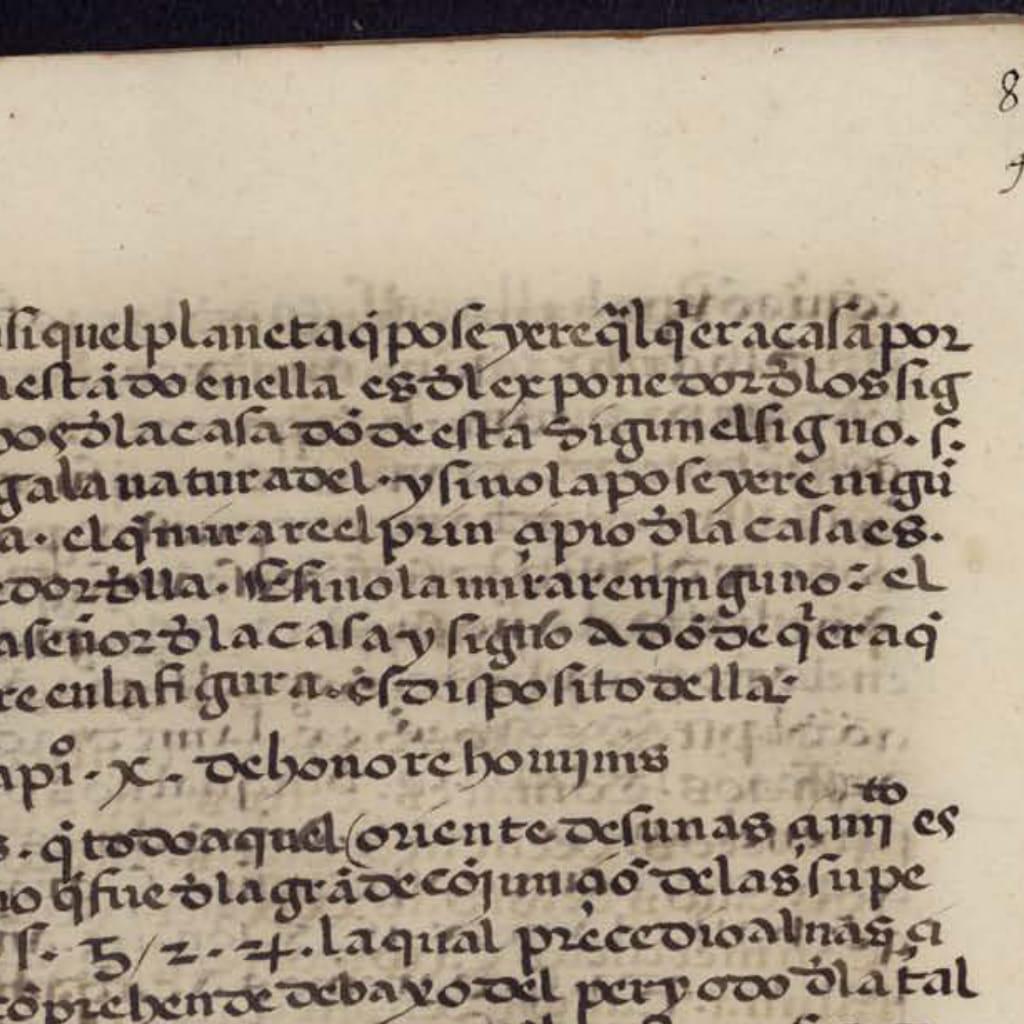 8
siquel planeta q̄ poseyere q̄l q̄er a casa por
estādo en ella es đl exponedor đlos sig
đla casa dōde esta sigun el signo. s.
ga la natura del. y si no la poseyere nigū
a. el q̄ mirare el prinçipio đla casa es.
edor đlla. E si no la mirare njnguno: el
señor đ la casa y signo adōde q̄er a q̄
re en la figura. es disposito della:
api°. x. de honore homınıs
s. q̄ todo aquel oriente de su nasçimīto es
no q̄ fue đla grāde cōjunçiō delas supe
s. ♄ / 2. ♃. la qual preçedio al nasçi
cōprehende debaxo del peryodo đla tal